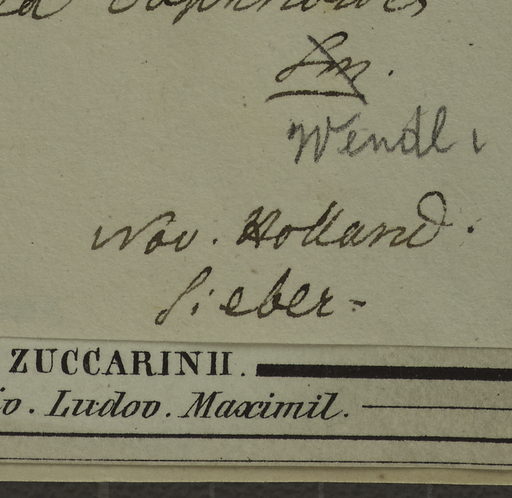 Sm.
Wendl.
Nov. Holland.
Sieber-
ZUCCARINII.
Ludov. Maximil.